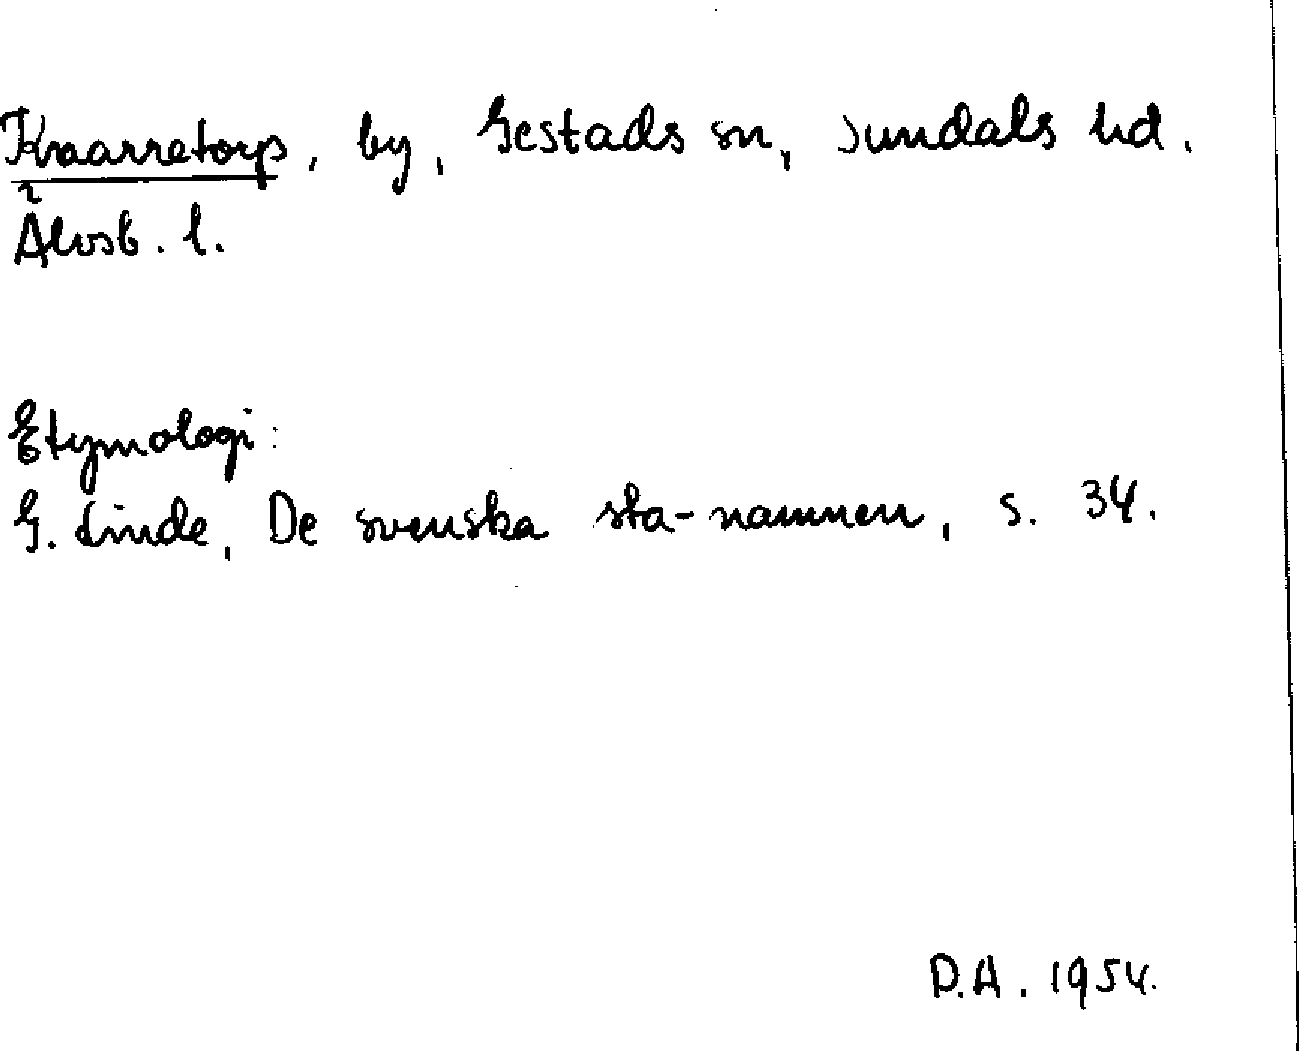 Kraarretorp, by, Gestads sn, Sundals hd.
Älvsb. l.
Etymologi:
G. Linde, De svenska sta-namnen, s. 34.
D.A. 1954.